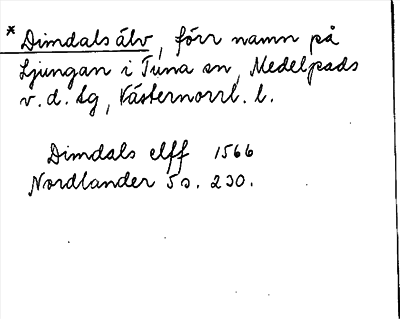 * Dimdals älv, förr namn på
Ljungan i Tuna sn, Medelpads
v. d. lg, Västernorrl. l.
Dimdals elff 1566
Nordlander 5 s. 230.